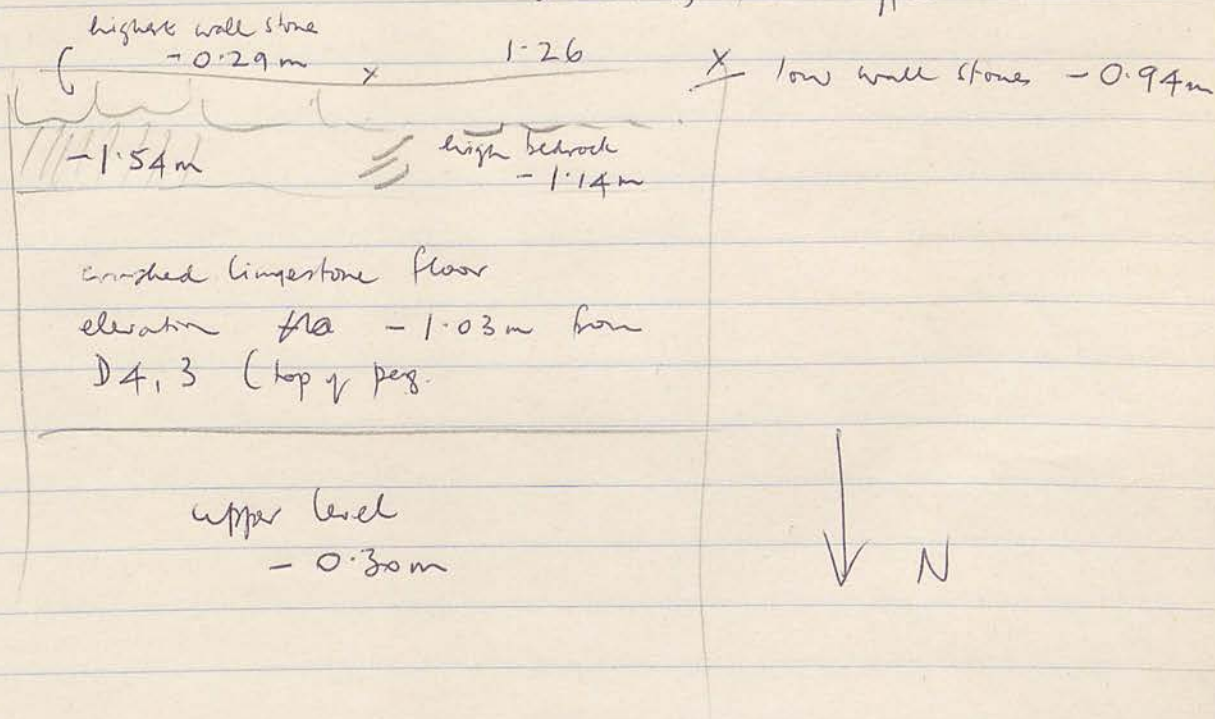 highest wall stone
- 0.29m x 1.26 x low wall stones - 0.94m
- 1.54m high bedrock
- 1.14m
crushed limgestone floor
elevation - 1.03m from
D4, 3 (top of peg.
upper level
- 0.30m
N